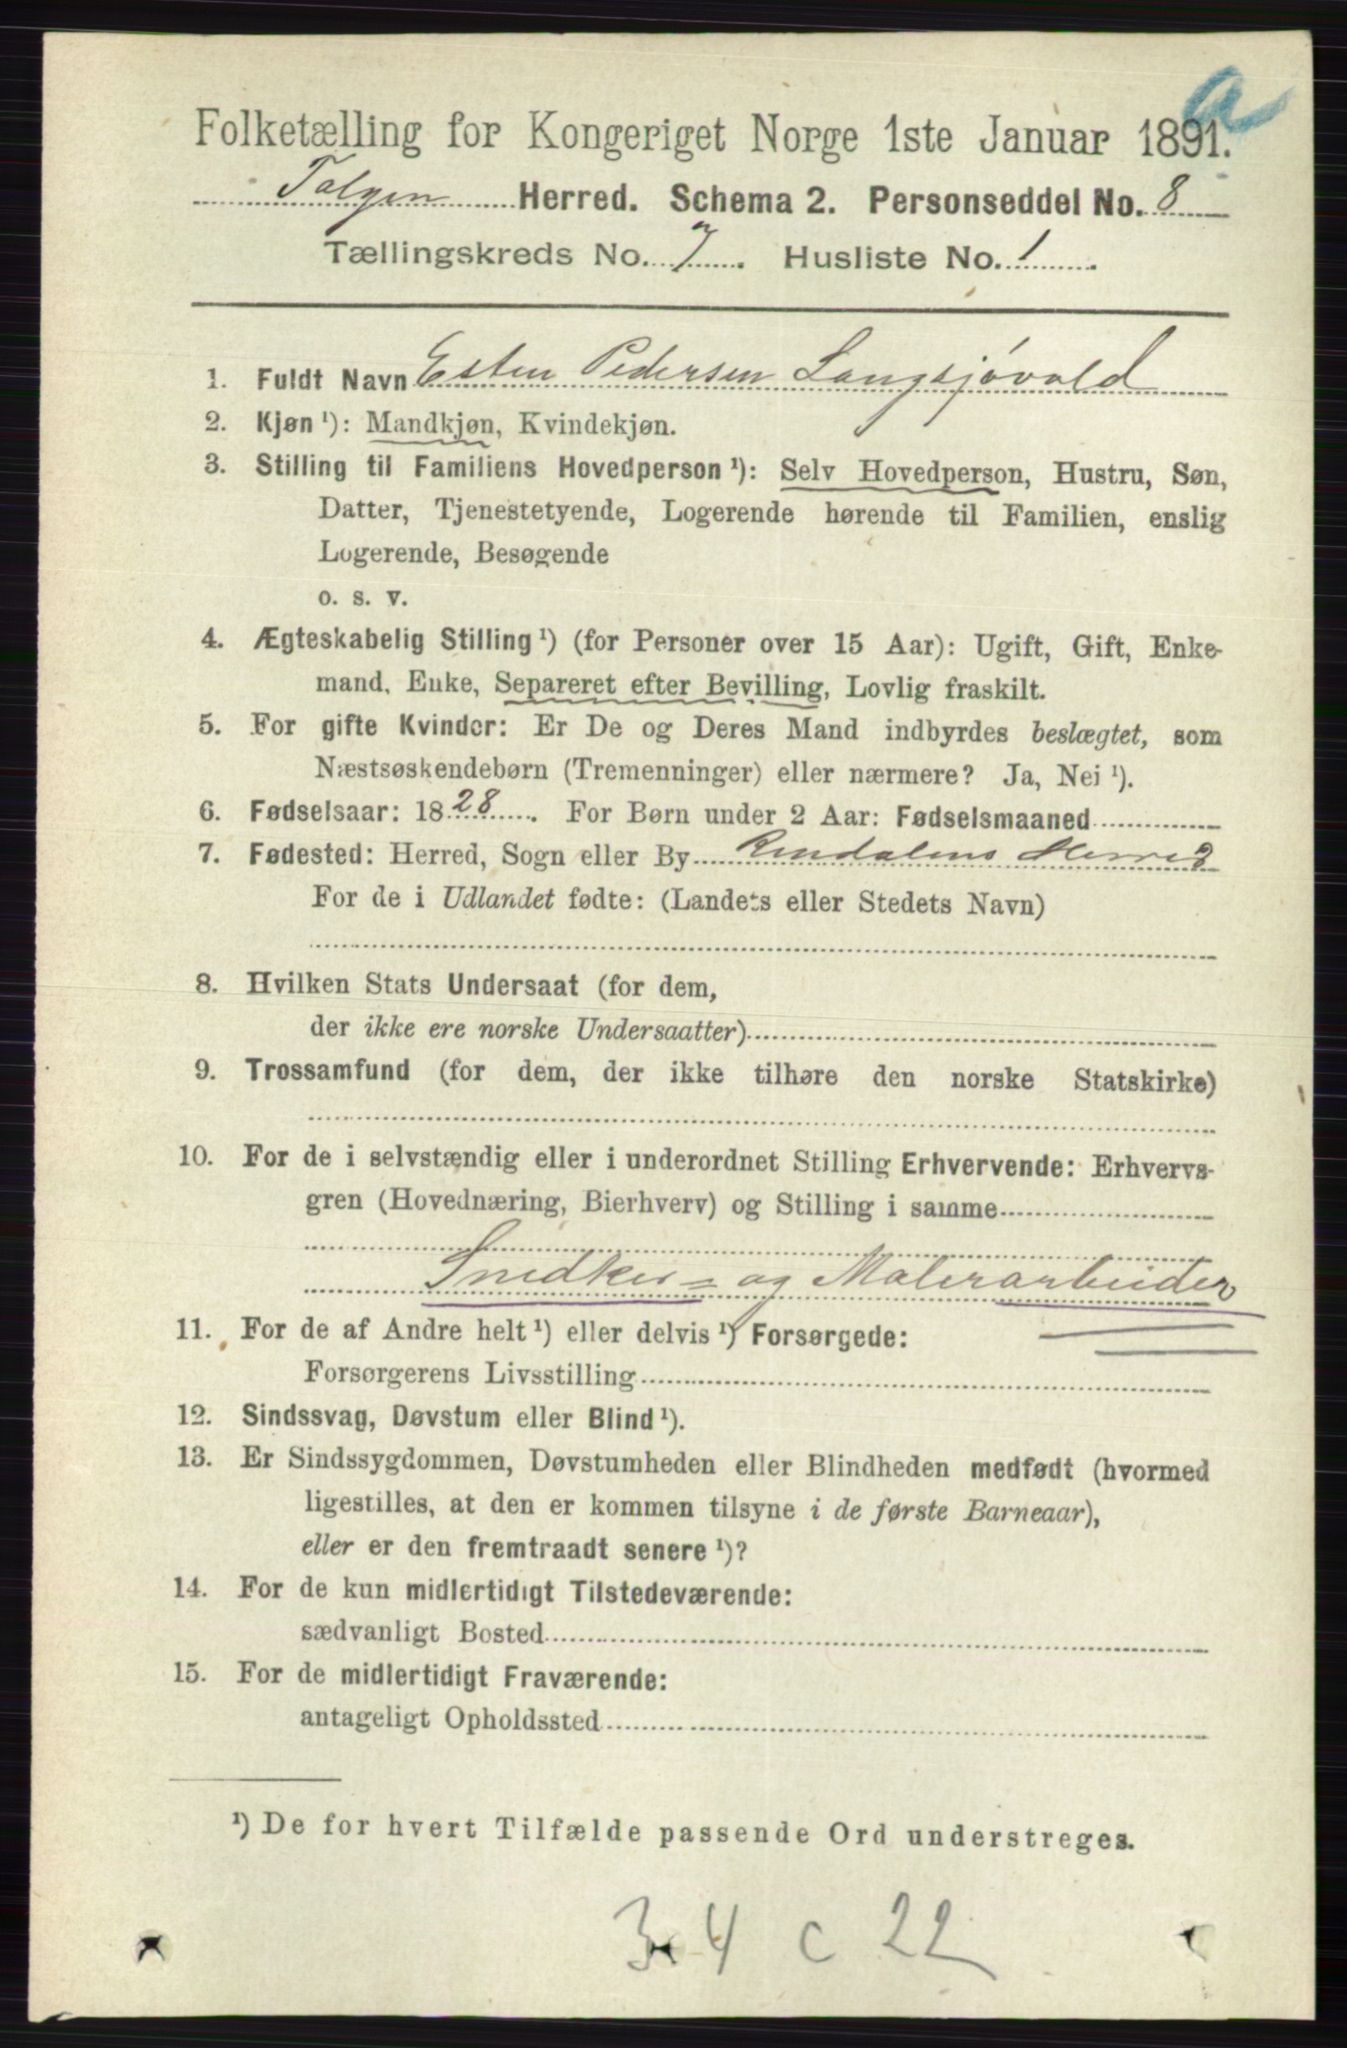 a
Folketælling for Kongeriget Norge 1ste Januar 1891.
Tolgen Herred. Schema 2. Personseddel No. 8
Tællingskreds No. 7. Husliste No. 1.
1. Fuldt Navn Esten Pedersen Langsjøvold
2. Kjøn ¹): Mandkjøn, Kvindekjøn.
3. Stilling til Familiens Hovedperson ¹): Selv Hovedperson, Hustru, Søn,
Datter, Tjenestetyende, Logerende hørende til Familien, enslig
Logerende, Besøgende
o. s. v.
4. Ægteskabelig Stilling ¹) (for Personer over 15 Aar): Ugift, Gift, Enke-
mand, Enke, Separeret efter Bevilling, Lovlig fraskilt.
5. For gifte Kvinder: Er De og Deres Mand indbyrdes beslægtet, som
Næstsøskendebørn (Tremenninger) eller nærmere? Ja, Nei ¹).
6. Fødselsaar: 1828. For Børn under 2 Aar: Fødselsmaaned
7. Fødested: Herred, Sogn eller By Rendalens Herred
For de i Udlandet fødte: (Landets eller Stedets Navn)
8. Hvilken Stats Undersaat (for dem,
der ikke ere norske Undersaatter)
9. Trossamfund (for dem, der ikke tilhøre den norske Statskirke)
10. For de i selvstændig eller i underordnet Stilling Erhvervende: Erhvervs-
gren (Hovednæring, Bierhverv) og Stilling i samme
Snedker- og Malerarbeider
11. For de af Andre helt ¹) eller delvis ¹) Forsørgede:
Forsørgerens Livsstilling
12. Sindssvag, Døvstum eller Blind ¹).
13. Er Sindssygdommen, Døvstumheden eller Blindheden medfødt (hvormed
ligestilles, at den er kommen tilsyne i de første Barneaar),
eller er den fremtraadt senere ¹)?
14. For de kun midlertidigt Tilstedeværende:
sædvanligt Bosted
15. For de midlertidigt Fraværende:
antageligt Opholdssted
¹) De for hvert Tilfælde passende Ord understreges.
3-4 c 22